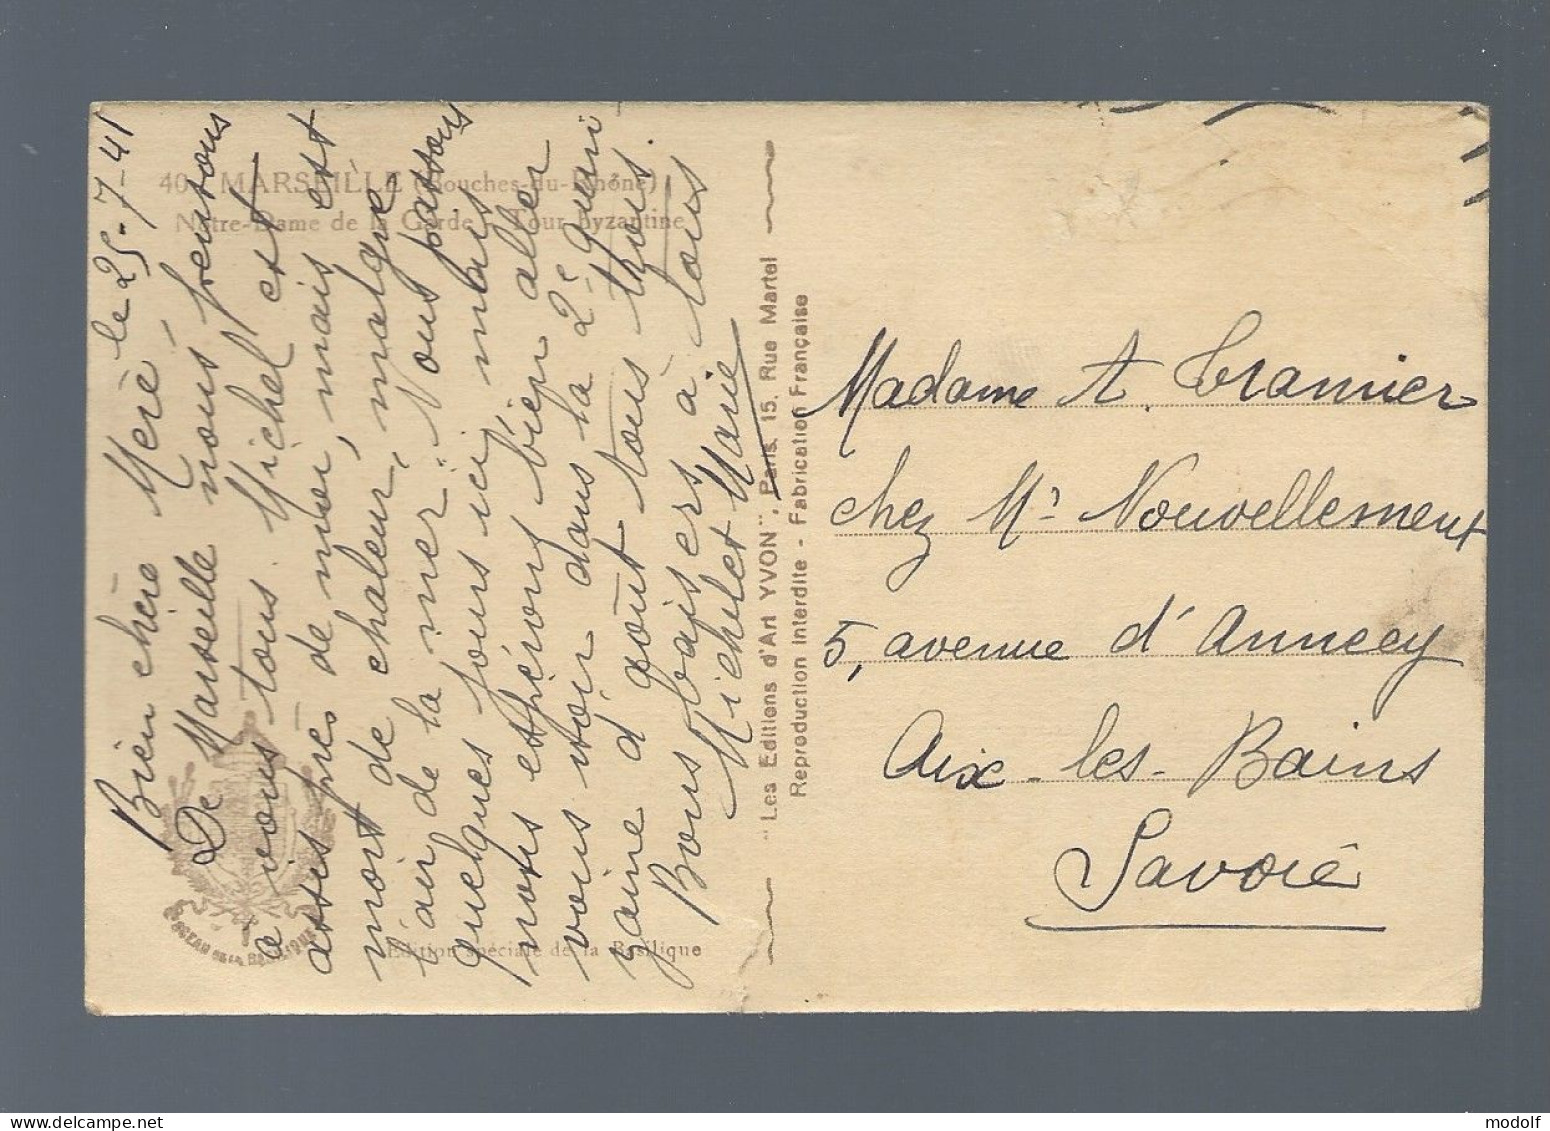 le 25-7-41
Bien chère Mère,
De Marseille nous pensons
à vous tous. Michel est
assis près de moi, mais est
mort de chaleur, malgré
l'air de la mer. Nous passons
quelques jours ici, mais
nous espérons bien aller
vous voir dans la 2e quin
zaine d'août tous trois.
Bons baisers à tous
Michel et Marie
40 MARSEILLE (Bouches-du-Rhône)
Notre-Dame de la Garde Tour byzantine
SCEAU DE LA BASILIQUE
Edition spéciale de la Basilique
"Les Editions d'Art YVON", Paris, 15, Rue Martel
Reproduction Interdite - Fabrication Française
Madame A. Tramier
chez Mr Nouvellement
5, avenue d'Annecy
Aix-les-Bains
Savoie
modolf